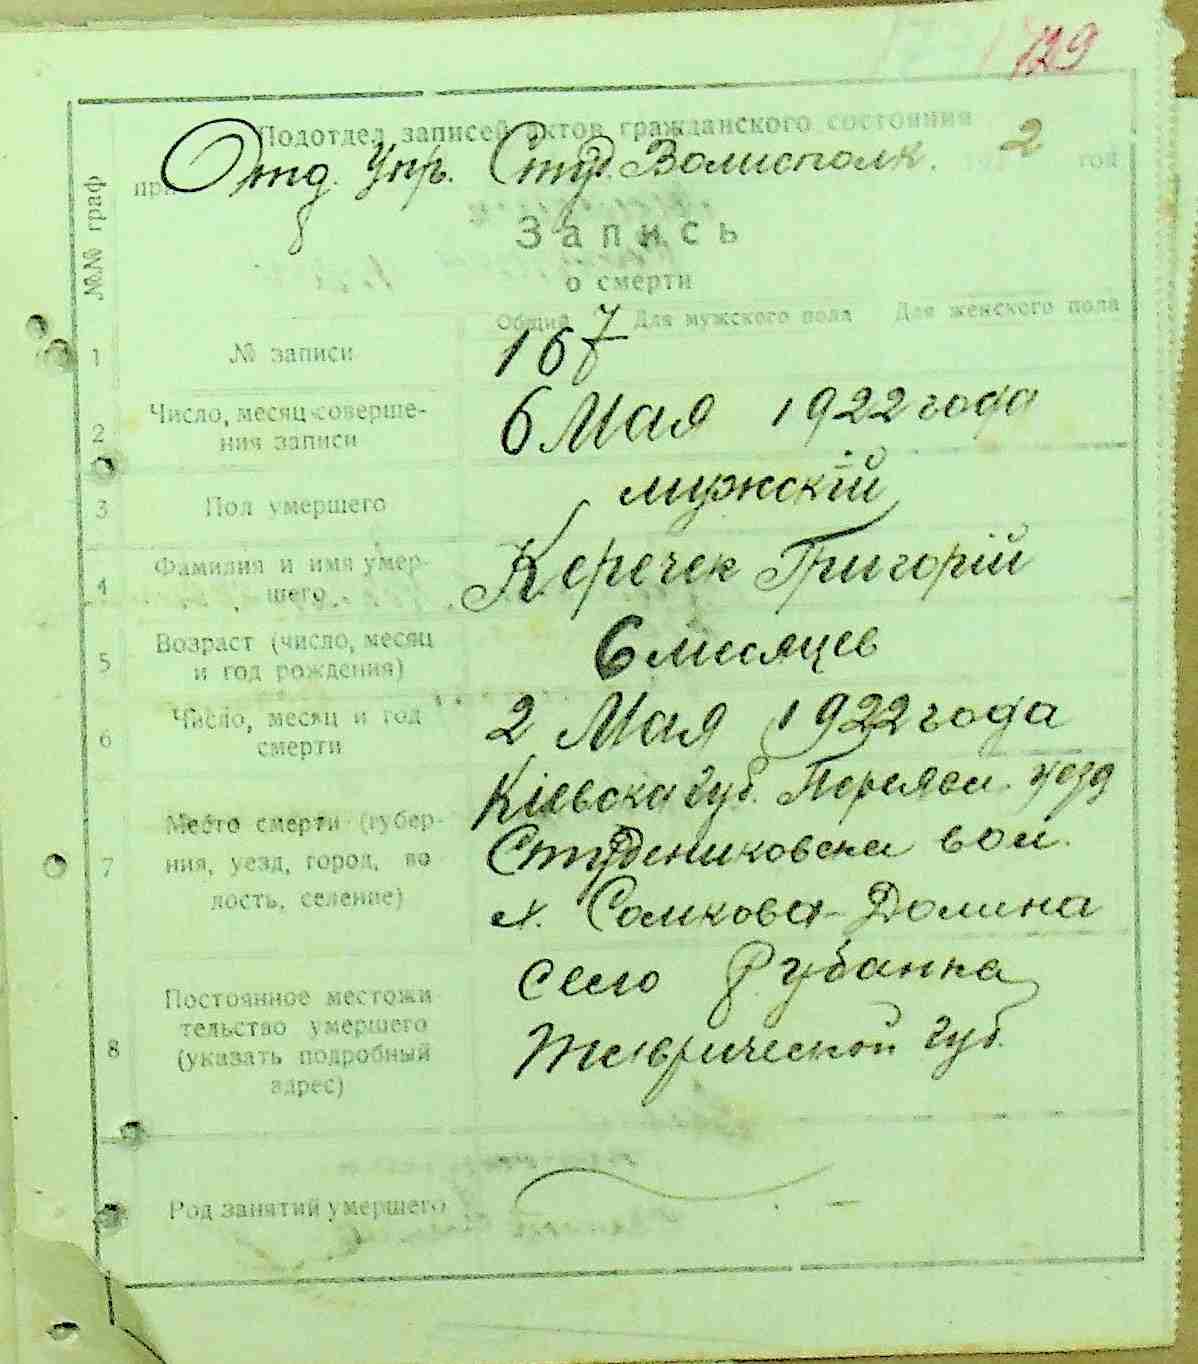 129
Подотдел записей актов гражданского состояния
при Отд. Упр. Студ. Волисполк. 2 гой
Запись
о смерти
№№ граф
Общий Для мужского пола Для женского пола
1 № записи 167
2 Число, месяц соверше-
ния записи 6 Мая 1922 года
3 Пол умершего мужскій
4 Фамилия и имя умер-
шего Керечек Григорій
5 Возраст (число, месяц
и год рождения) 6 месяцев
6 Число, месяц и год
смерти 2 Мая 1922 года
7 Место смерти (губер-
ния, уезд, город, во
лость, селение)
Кіевска губ. Переясл. уезд
Студениковска вол.
х. Сомкова-Долина
8 Постоянное местожи
тельство умершего
(указать подробный
адрес)
село Рубанка
Таврической губ.
Род занятий умершего —